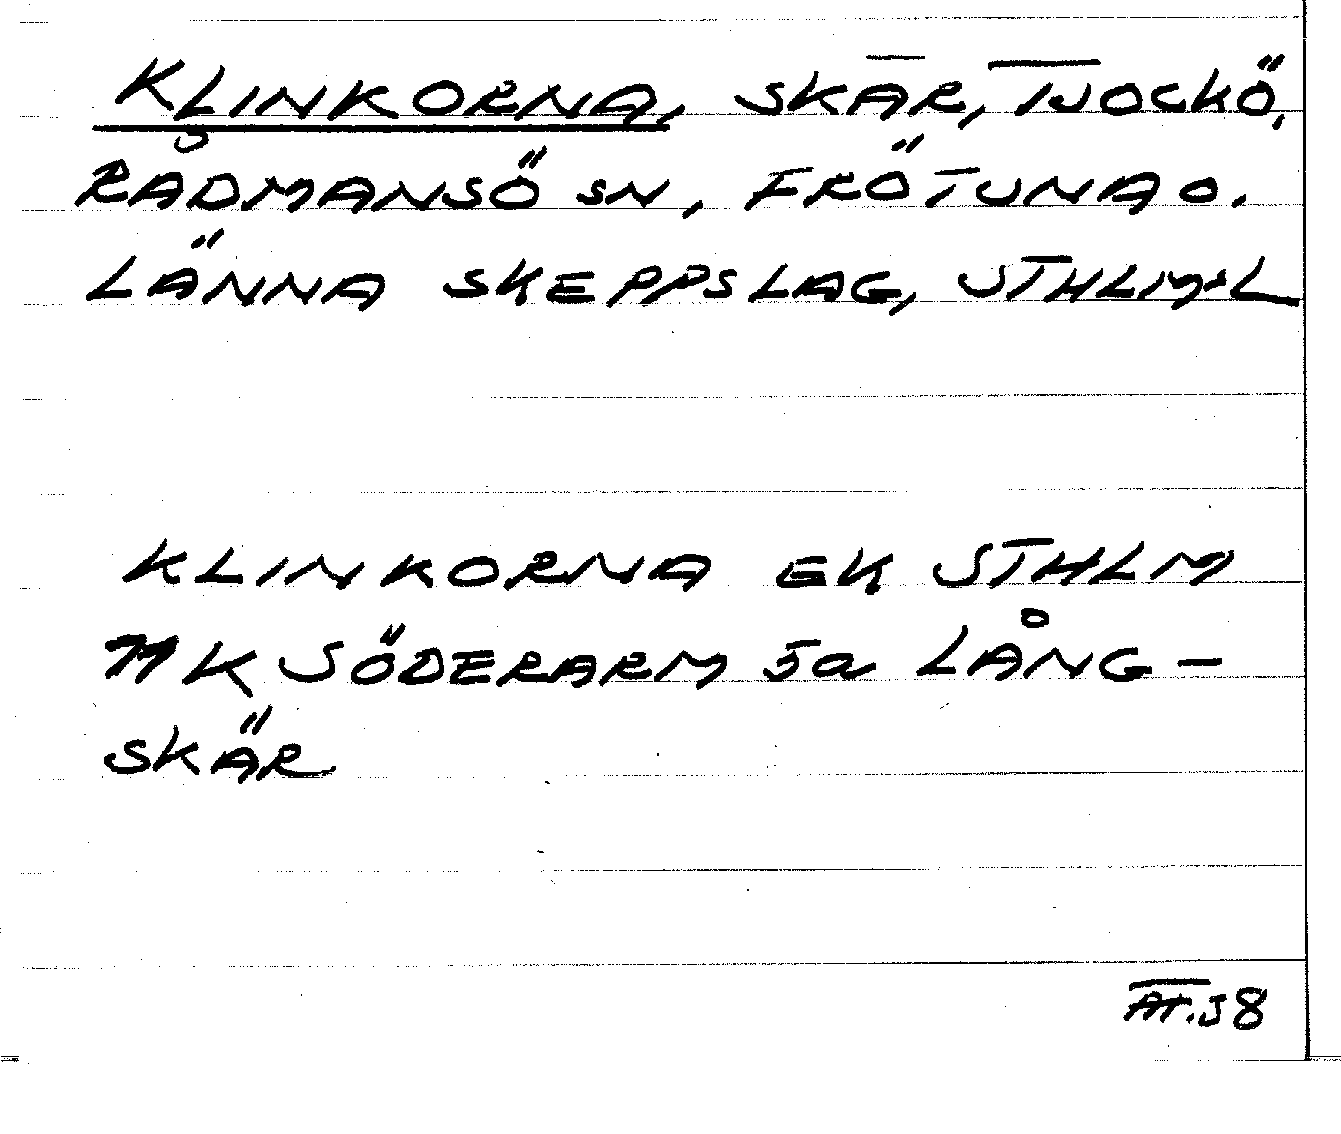 KLINKORNA, SKÄR, TJOCKÖ,
RÅDMANSÖ SN, FRÖTUNA O.
LÄNNA SKEPPSLAG, STHLMS L
KLINKORNA EK STHLM
MK SÖDERARM 5a LÅNG-
SKÄR
58